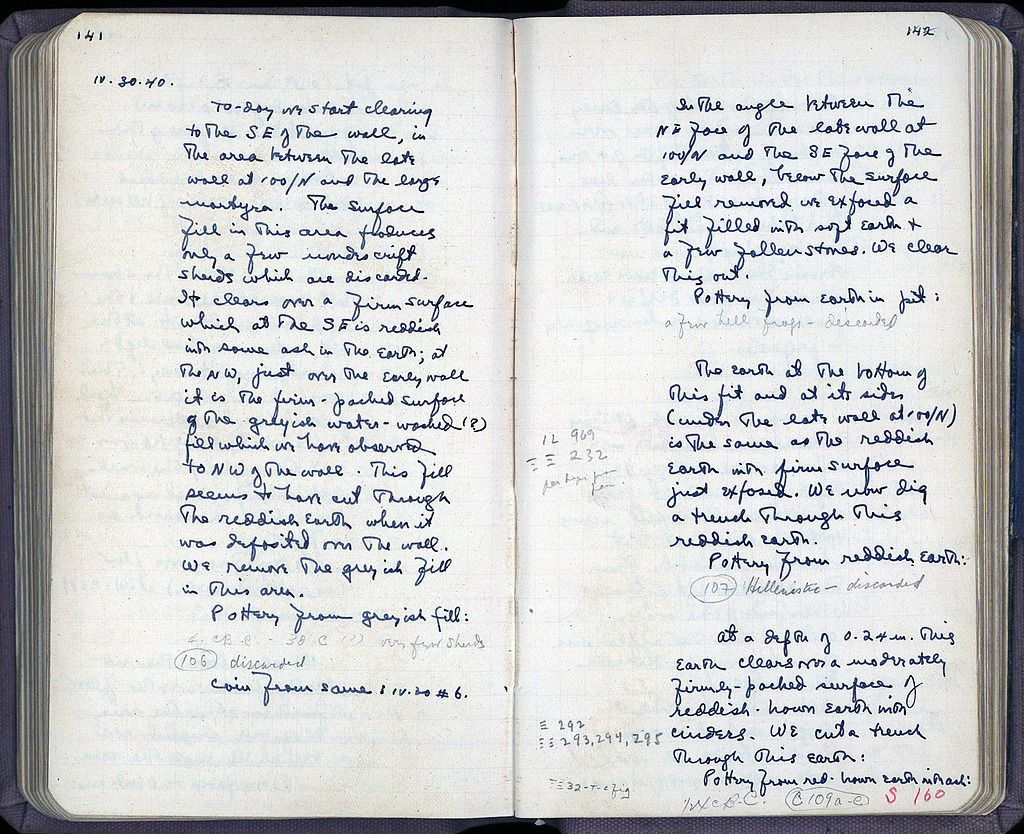 141
IV. 30. 40.
To-day we start clearing
to the SE of the wall, in
the area between the late
wall at 100/N and the large
martyra. The surface
fill in this area produces
only a few nondescript
sherds which are discarded.
It clears over a firm surface
which at the SE is reddish
with some ash in the earth; at
the NW, just over the early wall
it is the firm-packed surface
of the greyish water-washed (?)
fill which we have observed
to NW of the wall. This fill
seems to have cut through
the reddish earth when it
was deposited over the wall.
We remove the greyish fill
in this area.
Pottery from greyish fill:
4. cB.C. - 3B.C (?) very few sherds
106 discarded
Coin from same: IV.30 #6.
142
In the angle between the
NE face of the late wall at
100/N and the SE face of the
early wall, below the surface
fill removed we exposed a
pit filled with soft earth +
a few fallen stones. We clear
this out.
Pottery from earth in pit:
a few hell frags - discarded
The earth at the bottom of
this pit and at its sides
(under the late wall at 100/N)
is the same as the reddish
earth with firm surface
just exposed. We now dig
a trench through this
reddish earth.
Pottery from reddish earth:-
107 Hellenistic - discarded
IL 969
232
At a depth of 0.24 m. this
earth clears over a moderately
firmly-packed surface of
reddish-brown earth with
cinders. We cut a trench
through this earth:
Pottery from red-brown earth with ash:
292
293, 294, 295
B.C. B109a-e S 160